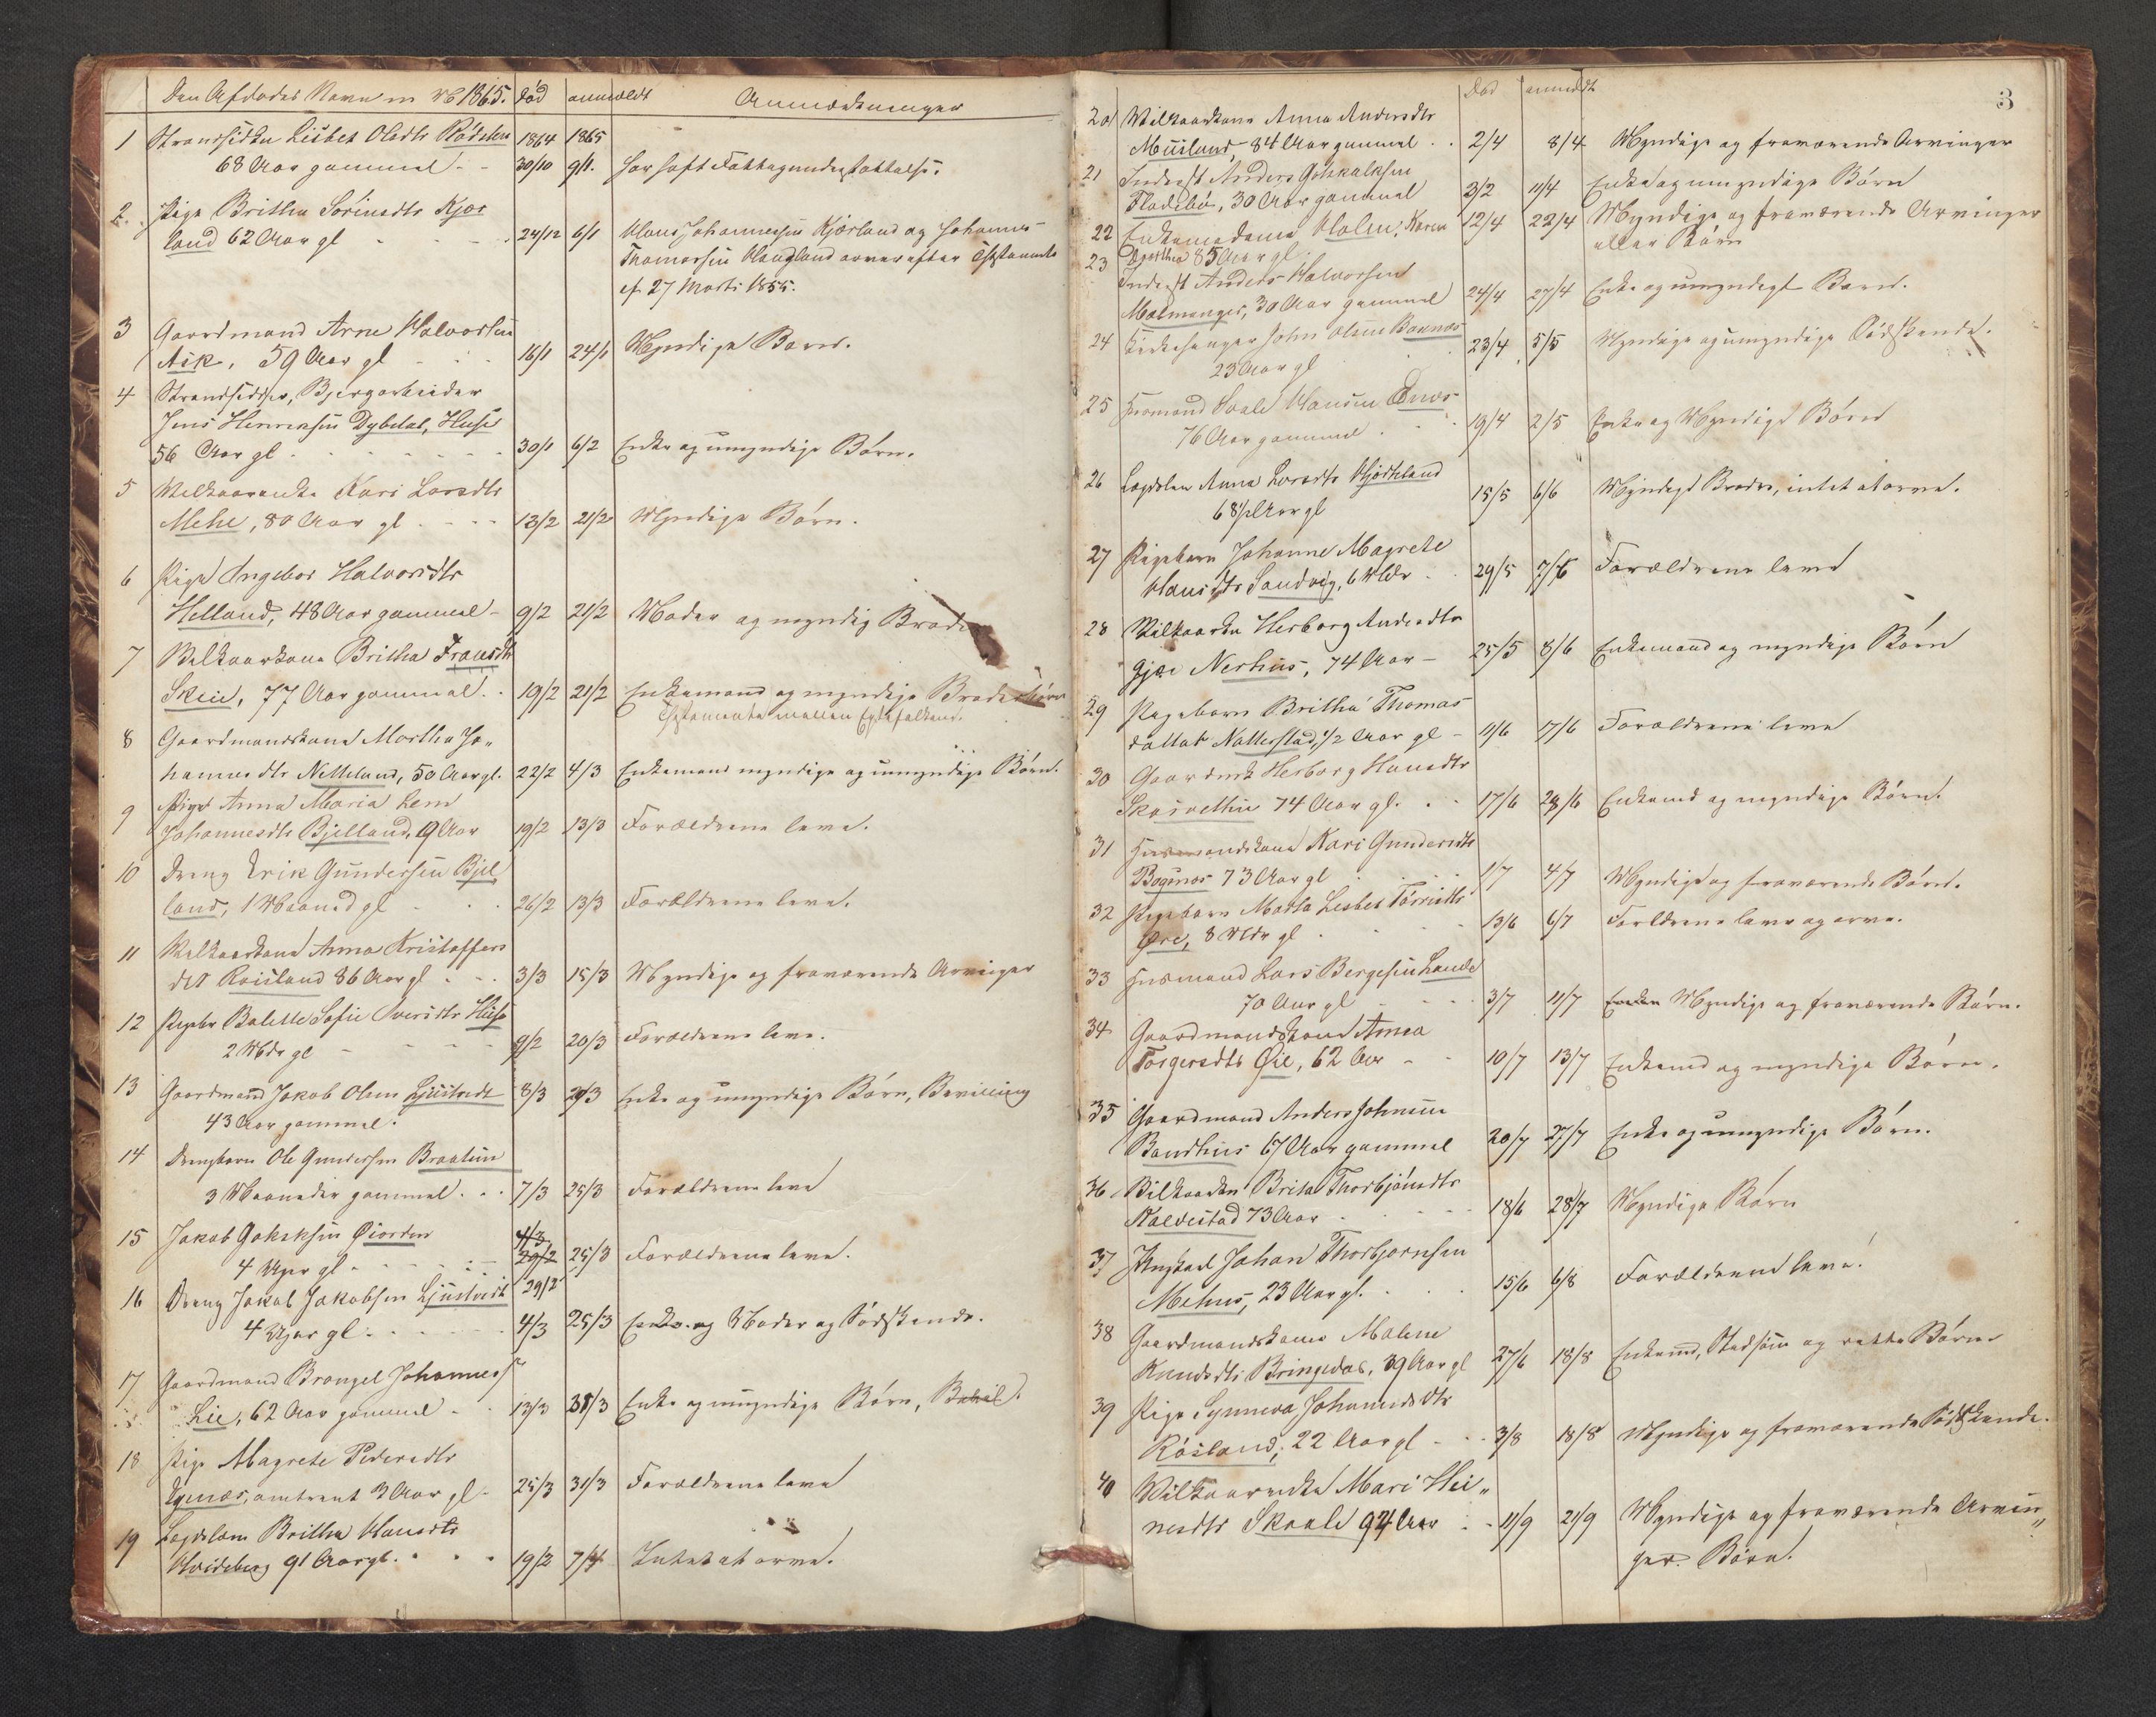 Den Afdødes Navn m 1865. død anmeldt Anmærkninger
1 Strandsidder Lisbet Olsdtr Rødsten 1864 1865
68 Aar gammel 30/10 9/1. har haft Fattigunderstøttelse.
2. Pige Britha Sørinsdtr Kjær
land 62 Aar gl 24/12 6/1 Hans Johannessen Kjærland og Johannes
Thomassen Haugland arver efter Testamente
af 27 Marts 1855.
3 Gaardmand Arne Halvorsen
Ask, 59 Aar gl 16/1 24/1 Myndige Børn.
4 Strandsidder, Bjergarbeider
Jens Henriksen Dybdal, Huse
56 Aar gl 30/1 6/2 Enke og umyndige Børn.
5 Vilkaarenke Kari Larsdtr
Mehe, 80 Aar gl 13/2 21/2 Myndige Børn.
6 Pige Ingebor Halvorsdtr
Helland, 48 Aar gammel - 9/2 21/2 Moder og myndig Broder
7 Vilkaarkone Britha Fransdtr
Skeie, 77 Aar gammel. 19/2 21/2 Enkemand og myndige Broderbørn
Testamente mellem Egtefolkene.
8 Gaardmandskone Martha Jo„
hannesdtr Netteland, 50 Aar gl. 22/2 4/3 Enkemand myndige og umyndige Børn.
9 Pige Anna Maria Lem
Johannesdtr Bjelland, 9 Aar 19/2 13/3 Forældrene leve.
10 Dreng Erik Gundersen Bjel
land, 1 Maaned gl 26/2 13/3 Forældrene leve.
11 Vilkaarkone Anna Kristoffers
dtr Røisland 86 Aar gl 3/3 15/3 Myndige og fraværende Arvinger
12 Pigebr Bolette Sofie Iversdtr Huse
2 Mdr gl 9/2 20/3 Forældrene leve.
13 Gaardmand Jakob Olsen Ljustvedt 8/3 21/3 Enke og umyndige Børn, Bevilling
43 Aar gammel.
14 Drengbarn Ole Gundersen Braatun
3 Maaneder gammel. 7/3 25/3 Forældrene leve
15 Jakob Goksksen Øierden 4/3
4 Uger gl 29/2 25/3 Forældrene leve.
16 Dreng Jakob Jakobsen Ljustvedt 29/2
4 Uger gl 4/3 25/3 Enke og Moder og Sødskende.
17 Gaardmand Brangel Johanness
Lie, 62 Aar gammel 13/3 31/3 Enke og umyndige Børn,
18 Pige Magrete Pedersdtr
Egenæs, omtrent 3 Aar gl 25/3 31/3 Forældrene leve
19 Lægdslem Britha Hansdtr
Hvideberg 91 Aar gl. 19/3 7/4 Intet at arve.
Død anmeldt 3
20 Vilkaarkone Anna Andersdtr
Musland, 84 Aar gammel 2/4 8/4 Myndige og fraværende Arvinger
21 Inderst Anders Gotskalksen
Fladebø, 30 Aar gammel 3/2 11/4 Enke og umyndige Børn
22 Enkemadame Holm, Karen 12/4 22/4 Myndige og fraværende Arvinger
Dorthea 85 Aar gl. eller Børn
23 Inderst Anders Halvorsen
Malmanger, 30 Aar gammel 24/4 27/4 Enke og umyndigt Barn.
24 Kirkesanger John Olsen Baunæs 23/4 5/5 Myndige og umyndige Sødskende.
23 Aar gl
25 Husmand Svale Hansen Ænæs
76 Aar gammel 19/4 2/5 Enke og Myndige Børn
26 Lægdslem Anna Larsdtr Hjortland 15/5 6/6 Myndige Broder, intet at arve.
68½ Aar gl
27 Pigebarn Johanne Magrete
Hansdtr Sandvig, 6 Mdr 29/5 7/6 Forældrene leve
28 Vilkaarke Herborg Andersdtr
Gjøe Nerhus, 74 Aar - 25/5 8/6 Enkemand og myndige Børn
29 Pigebarn Britha Thomas
datter Natterstad, ½ Aar gl - 11/6 17/6 Forældrene leve
30 Gaardmk Herborg Hansdtr
Skarvethun 74 Aar gl. 17/6 28/6 Enkemd og myndige Børn.
31 Husmandskone Kari Gundersdtr
Bogenæs 73 Aar gl 1/7 4/7 Myndige og fraværende Børn.
32 Pigebarn Marta Lisbet Tørrisdtr
Øre, 8 Mdr gl 13/6 6/7 Forldrene leve og arve.
33 Husmand Lars Bergesen Lande
70 Aar gl 3/7 11/7 Enken Myndige og fraværende Børn.
34 Gaardmandskone Anna
Torgersdtr Øie, 62 Aar 10/7 13/7 Enkemd og myndige Børn.
35 Gaardmand Anders Johnsen
Bondhus 67 Aar gammel 20/7 27/7 Enke og umyndige Børn.
36 Vilkaarken Brita Thorbjönsdtr
Kalvestad 73 Aar 18/6 28/7 Myndige Børn
37 Ungkarl Johan Thorbjørnsen
Mehus, 23 Aar gl. 15/6 6/8 Forældrene leve.
38 Gaardmandskone Malene
Knudsdtr Bringedal, 39 Aar gl 27/6 18/8 Enkemd, Stedsøn og rette Børn
39 Pige Synneva Johannesdtr
Røisland, 22 Aar gl 3/8 18/8 Myndige og fraværende Sødskende.
40 Vilkaarenke Mari Hei„
nesdtr Skaale 94 Aar 11/9 21/9 Myndige og fraværende Arvin„
ger. Børn.